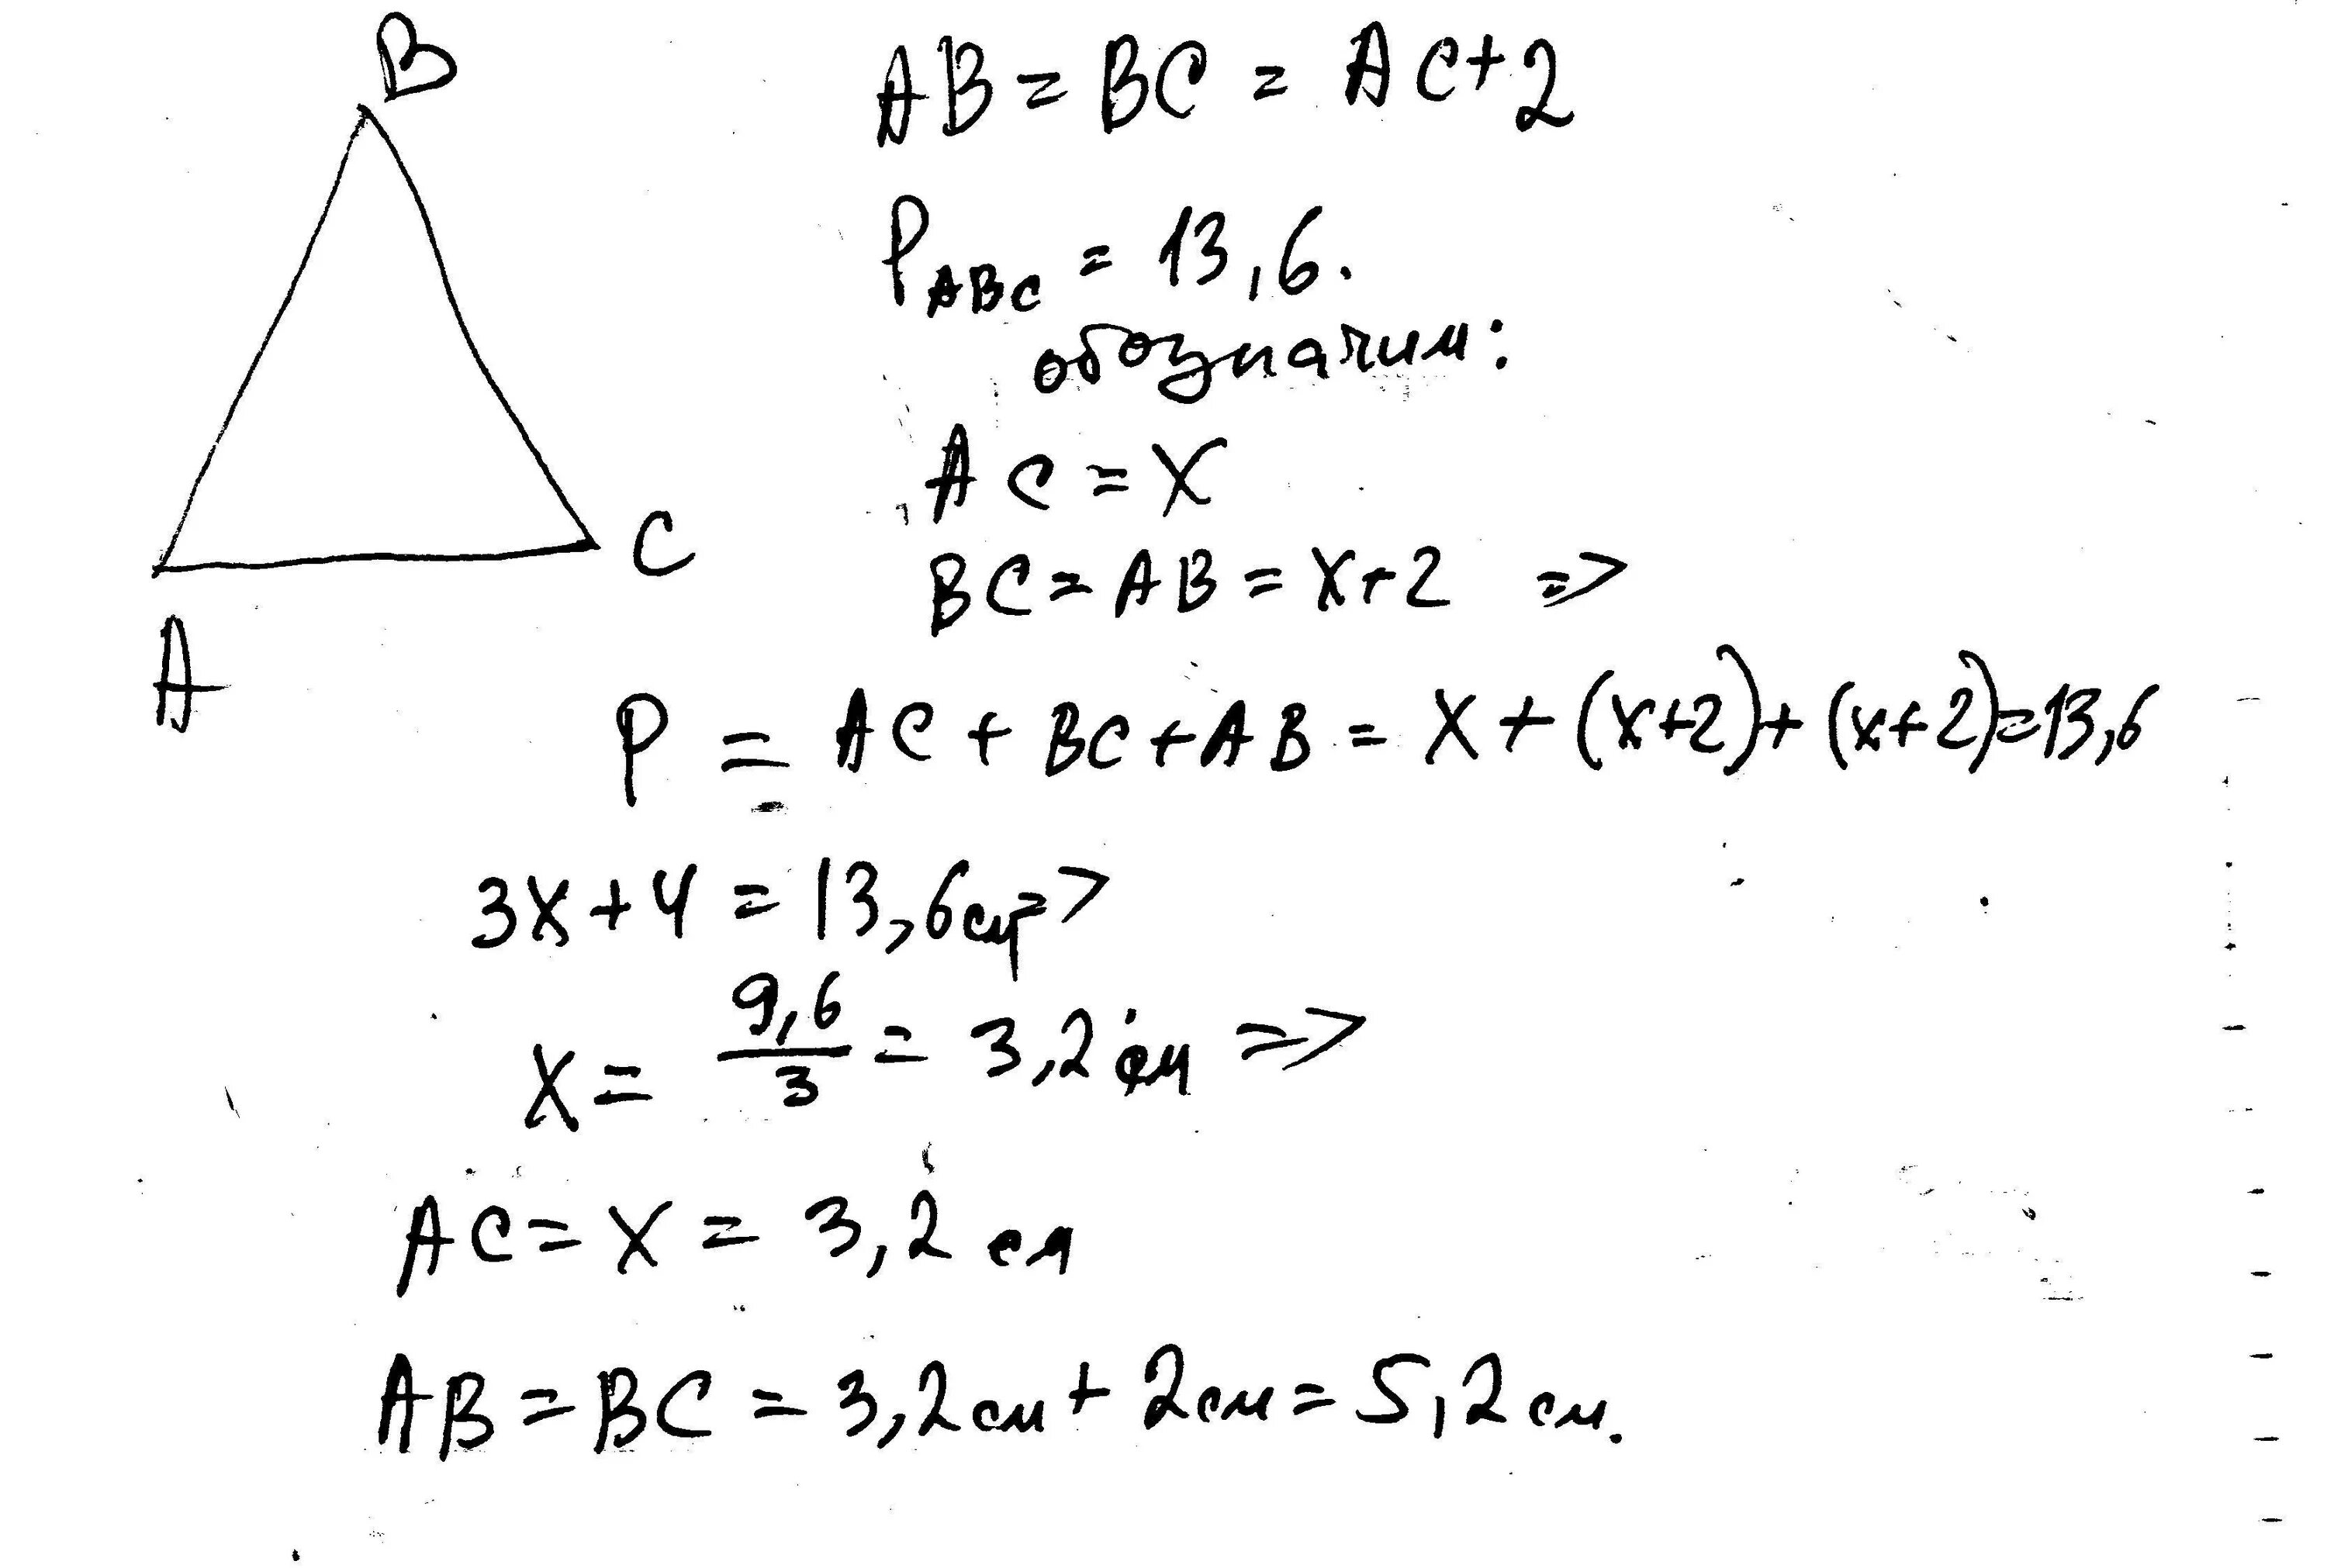 B
AB = BC = AC+2
P ABC = 13,6.
обозначим:
AC = X
C
BC = AB = X+2 =>
A
P = AC + BC + AB = X + (X+2) + (X+2) = 13,6
3X + 4 = 13,6см =>
X = 9,6/3 = 3,2 см =>
AC = X = 3,2 см
AB = BC = 3,2см + 2см = 5,2см.